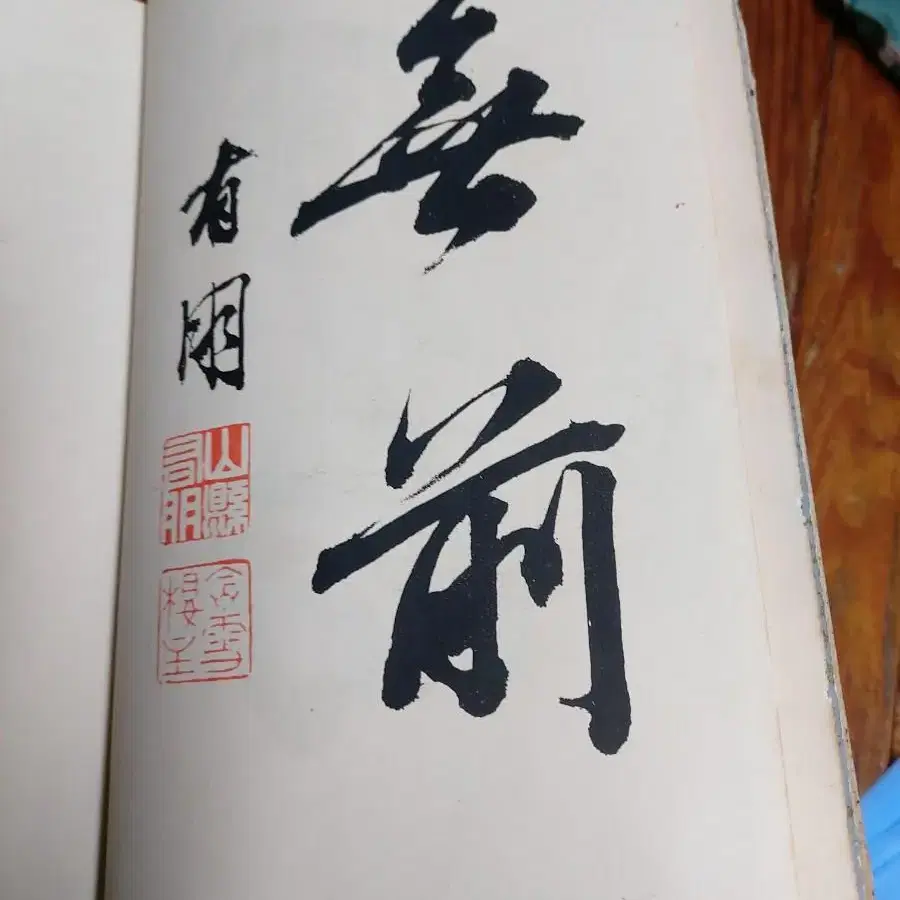 無前
有朋
山縣有朋
含雪樓主